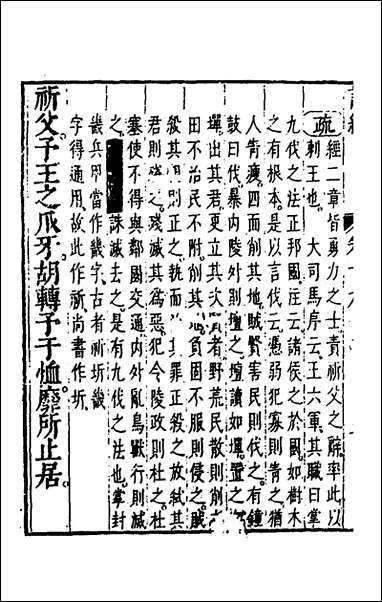 疏 經二章皆勇力之士責祈父之辭率此以
刺王也 大司馬序云王六軍其職曰掌
九伐之法正邦國注云諸侯之於國如樹木
之有根本是以言伐云憑弱犯寡則眚之猶
人眚瘦四面削其地賊賢害民則伐之有鐘
鼓曰伐暴內陵外則壇之壇讀如墠置之
墠出其君更立其次賢者野荒民散則削
田不治民不附削其地負固不服則侵之賊
殺其則正之執而其罪正殺之放弒其
君則殘之殘滅其為惡犯令陵政則杜之杜
塞使不得與鄰國交通內外亂鳥獸行則滅
之誅滅去之是有九伐之法也掌封
畿兵甲當作畿字古者祈圻畿
字得通用故此作祈尚書作圻
祈父予王之爪牙胡轉予于恤靡所止居